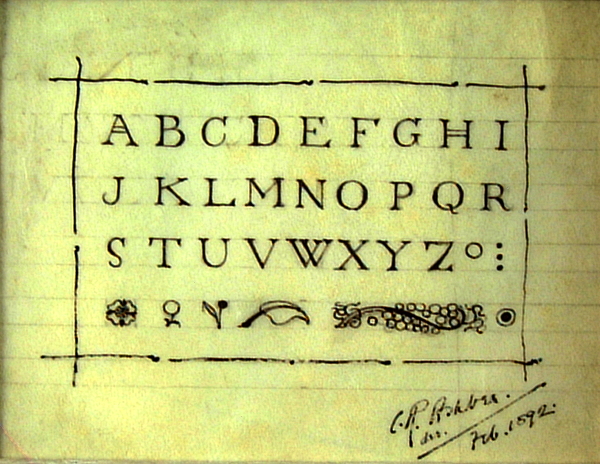 A B C D E F G H I
J K L M N O P Q R
S T U V W X Y Z
C. R. Ashbee.
Feb. 1892.